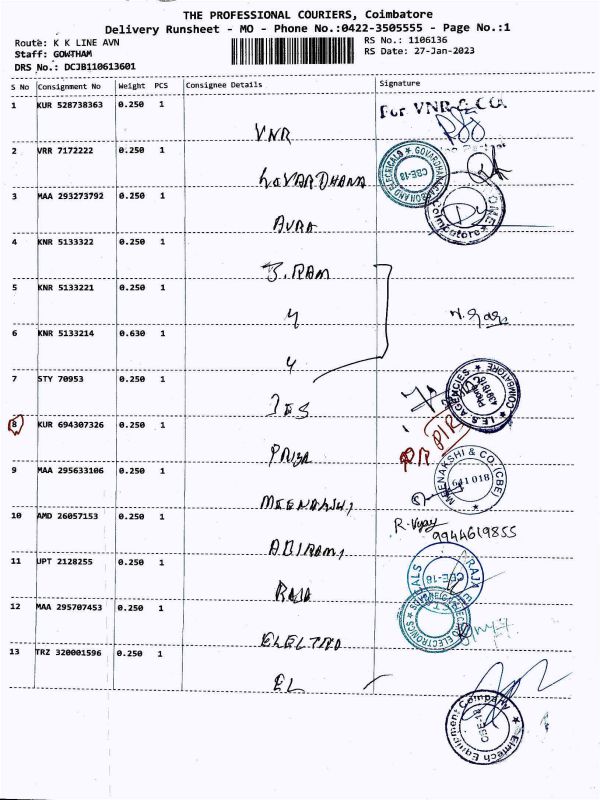 THE PROFESSIONAL COURIERS, Coimbatore
Delivery Runsheet - MO - Phone No.:0422-3505555 - Page No.:1
Route: K K LINE AVN
Staff: GOWTHAM
DRS No.: DCJB110613601
RS No.: 1106136
RS Date: 27-Jan-2023
S No Consignment No Weight PCS Consignee Details Signature
1 KUR 528738363 0.250 1 VNR For VNR & CO.
2 VRR 7172222 0.250 1 GOVARDHANA
3 MAA 293273792 0.250 1 AURA
4 KNR 5133322 0.250 1 J.RAM
5 KNR 5133221 0.250 1 4
6 KNR 5133214 0.630 1 4
7 STY 70953 0.250 1 IES I.E.S AGENCIES COIMBATORE
8 KUR 694307326 0.250 1 PRIYA
9 MAA 295633106 0.250 1 MEENAKSHI MEENAKSHI & CO.(CBE) 641 018
10 AMD 26057153 0.250 1 ABIRAMI R. Vijay 9944619855
11 UPT 2128255 0.250 1 RAJA CBE-18
12 MAA 295707453 0.250 1 ELECTRO
13 TRZ 320001596 0.250 1 EL
Elmtech Equipment Company CBE-18